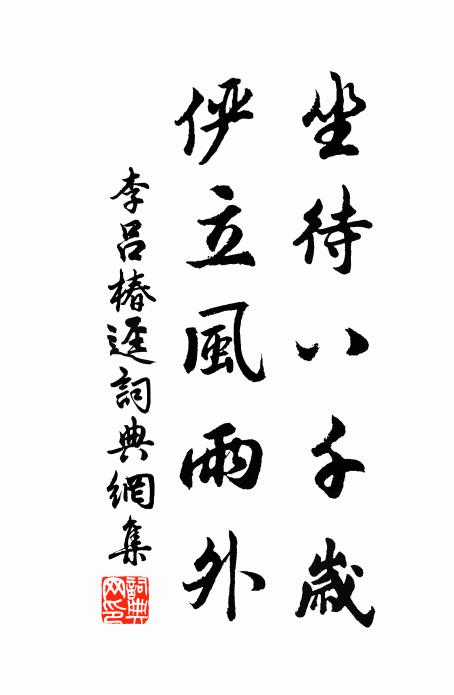 坐待八千歲
俨立風雨外
李呂椿逕詞典網集
詞典网印